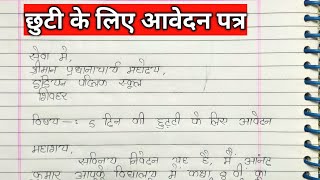 छुटी के लिए आवेदन पत्र
सेवा में,
श्रीमान प्रधानाचार्य महोदय,
इंडियन पब्लिक स्कूल
शिवहर
विषय —: 5 दिन की छुट्टी के लिए आवेदन
महाशय,
सविनय निवेदन यह है, मैं आनंद
कुमार आपके विद्यालय में कक्षा का